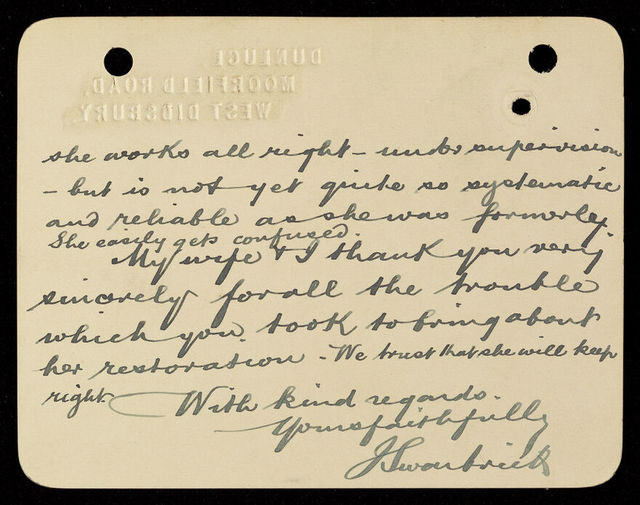 DUNLUCE,
MOORFIELD ROAD,
WEST DIDSBURY.
she works all right - under supervision
- but is not yet quite so systematic
and reliable as she was formerly.
She easily gets confused.
My wife & I thank you very
sincerely for all the trouble
which you took to bring about
her restoration - We trust that she will keep
right.
With kind regards.
Yours faithfully
J Swarbrick